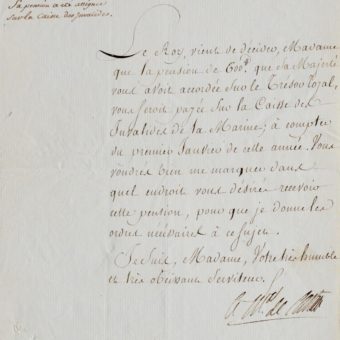 Sa pension a été assignée
sur la Caisse des Invalides.
Le Roy, vient de decider, Madame
que la pension de 600# que Sa Majesté
vous avoit accordée sur le Trésor Royal,
vous seroit payée sur la Caisse des
Invalides de la Marine, à compter
du premier Janvier de cette année. Vous
voudrés bien me marquer dans
quel endroit vous désirés recevoir
cette pension, pour que je donne les
ordres nécéssaires à ce sujet.
Je suis, Madame, Votre très humble
et très obéissant Serviteur.